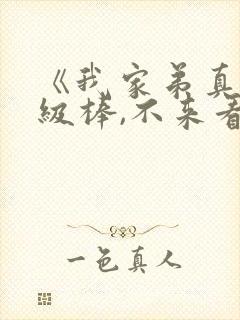 《我家弟真
級棒,不来看
一色真人